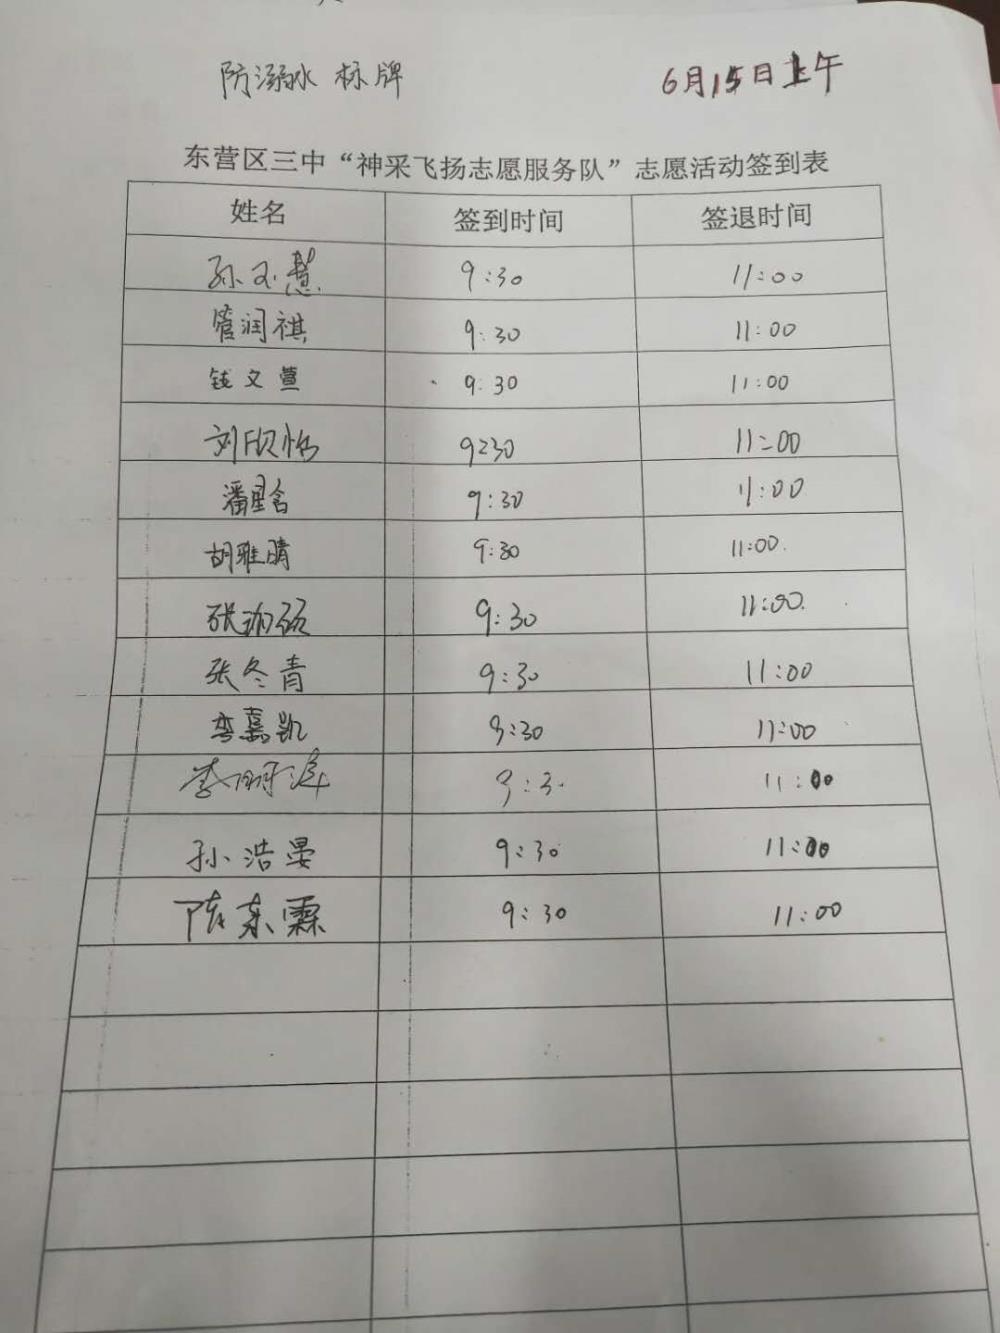 防溺水标牌 6月15日上午
东营区三中“神采飞扬志愿服务队”志愿活动签到表
姓名 签到时间 签退时间
孙玉慧 9:30 11:00
管润祺 9:30 11:00
钱文萱 9:30 11:00
刘欣怡 9:30 11:00
潘星含 9:30 11:00
胡雅晴 9:30 11:00
张 9:30 11:00
张冬青 9:30 11:00
李嘉凯 9:30 11:00
李 9:3 11:00
孙浩晏 9:30 11:00
陈东霖 9:30 11:00